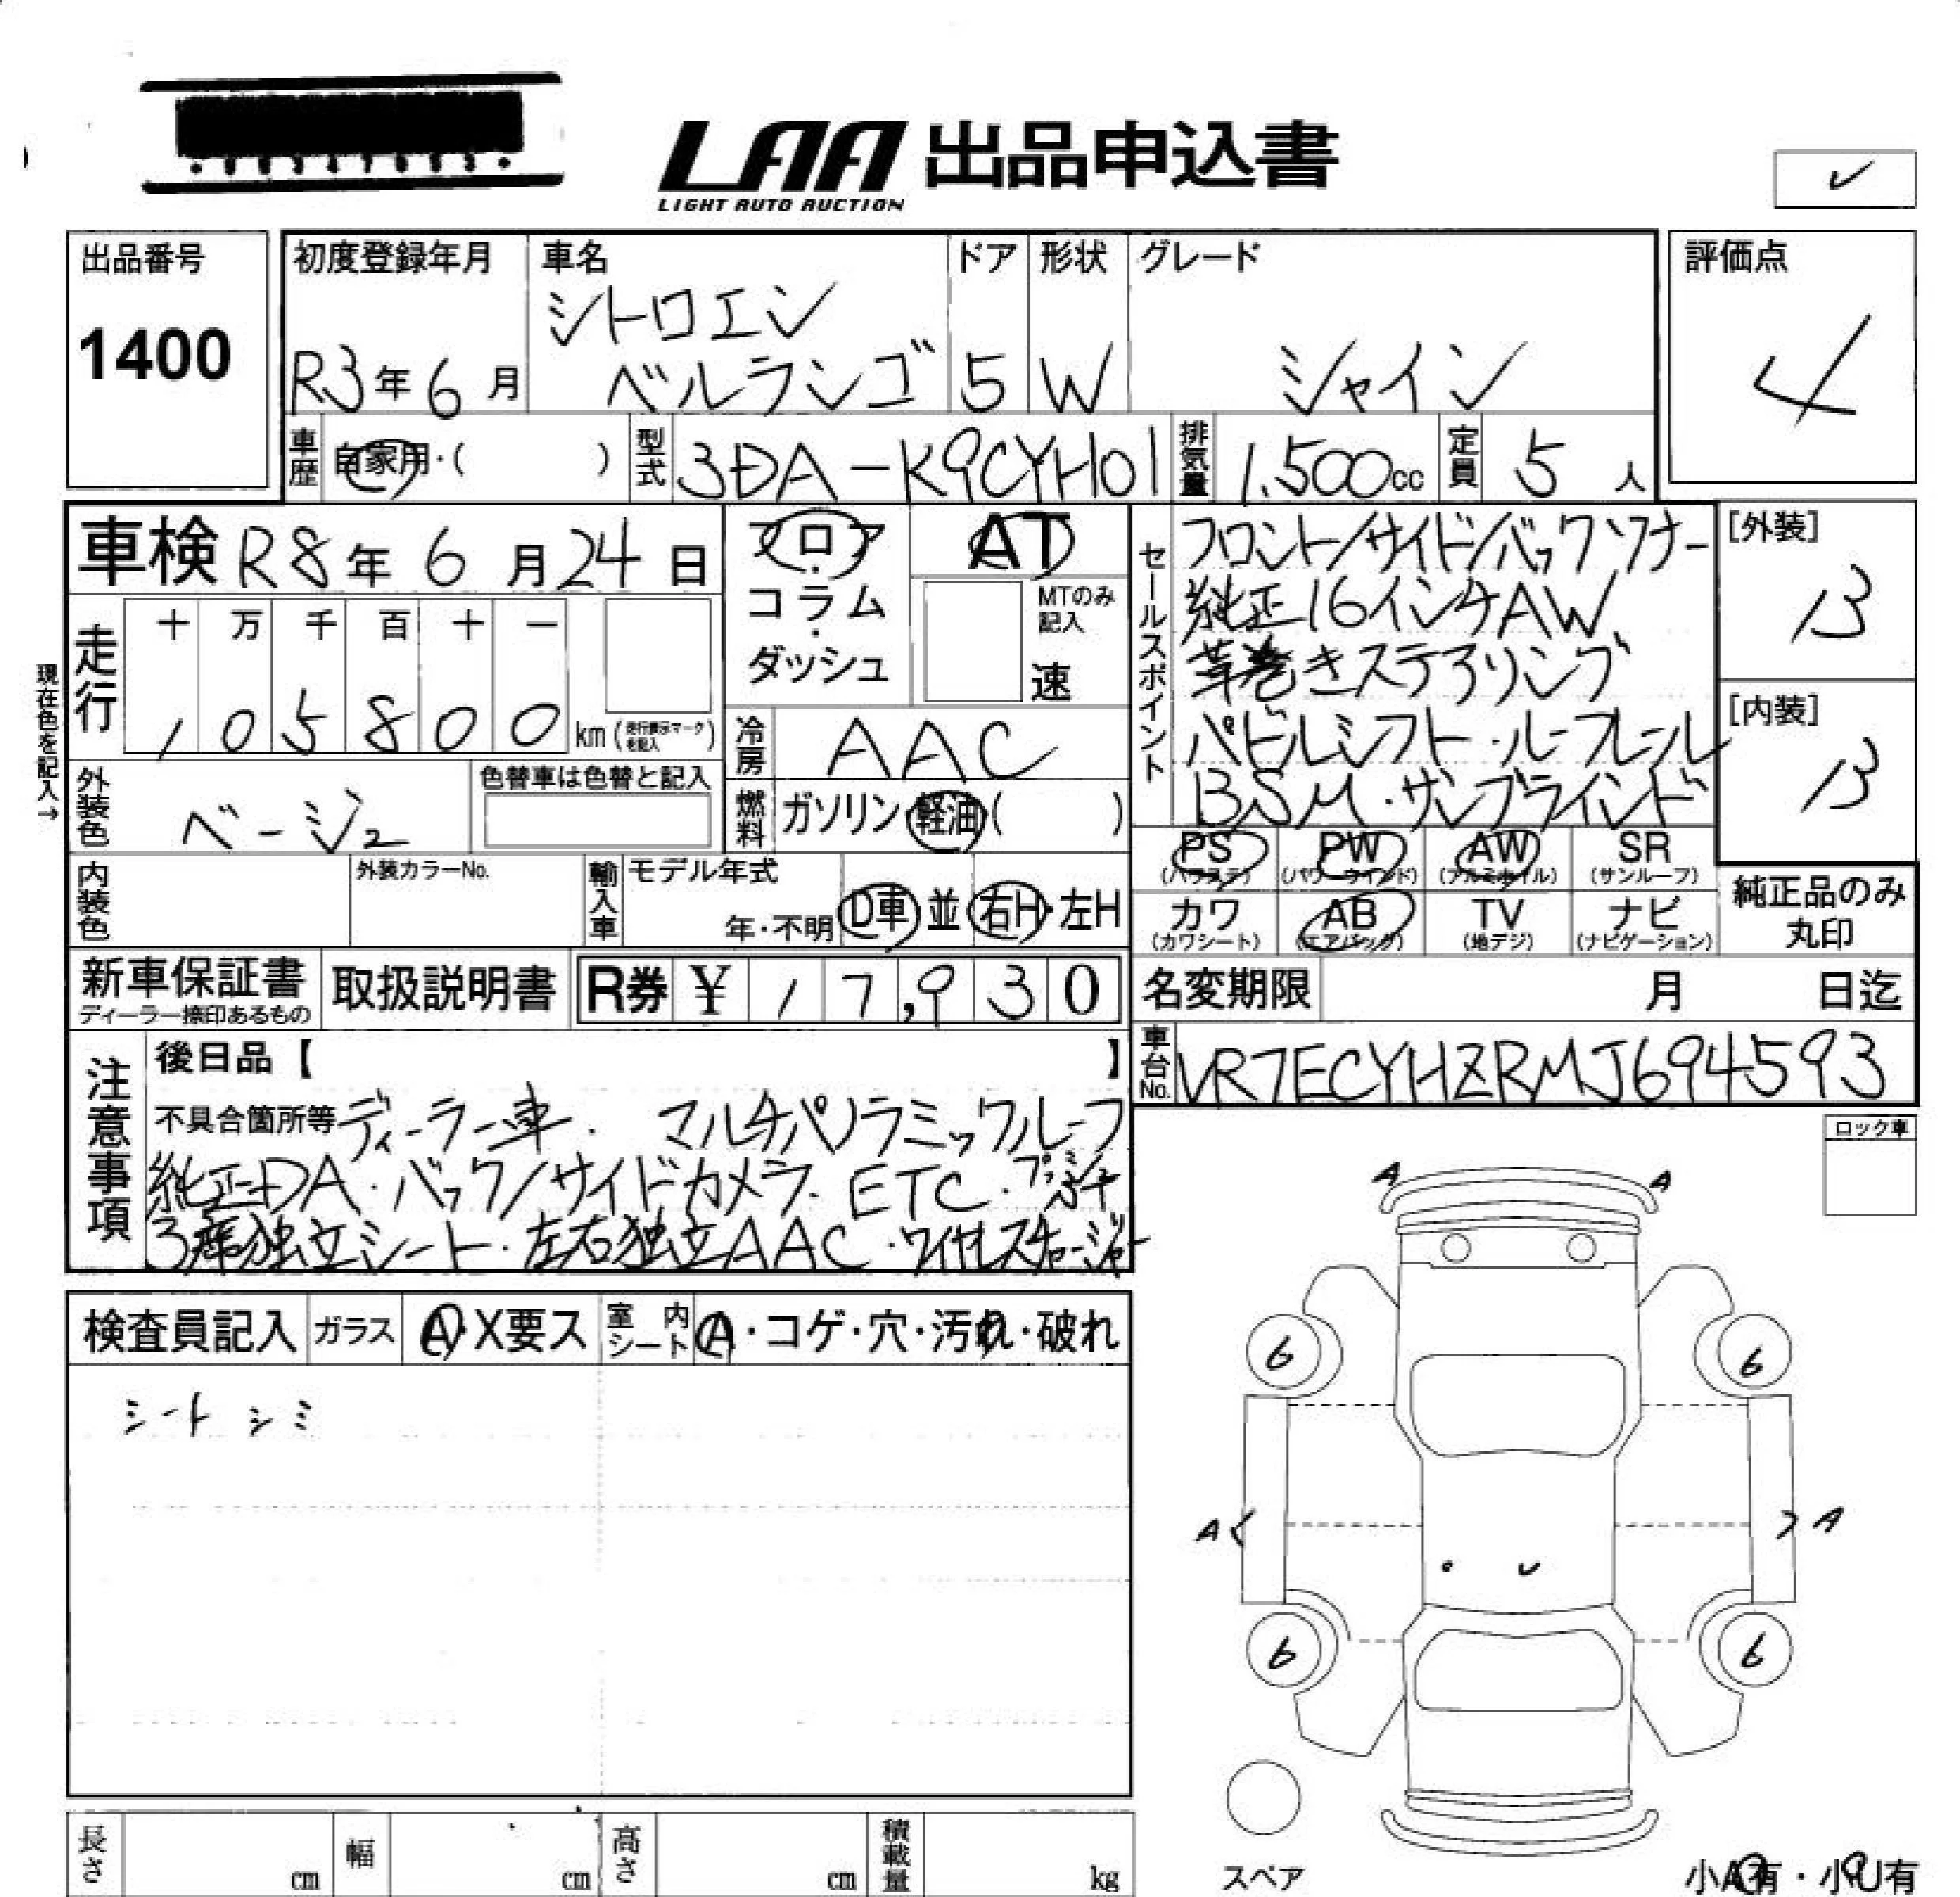 LAA 出品申込書
LIGHT AUTO AUCTION
出品番号
1400
初度登録年月
R3年6月
車名
シトロエン
ベルランゴ
ドア
5
形状
W
グレード
シャイン
評価点
4
車歴
自家用・( )
型式
3DA-K9CYH01
排気量
1,500cc
定員
5人
車検 R8年6月24日
フロア・コラム・ダッシュ
AT
MTのみ記入
速
セールスポイント
フロント/サイド/バックソナー
純正16インチAW
革巻きステアリング
パドルシフト・ルーフレール
BSM・サンブラインド
[外装]
B
[内装]
B
走行
十 万 千 百 十 一
105800 km(走行表示マークを記入)
現在色を記入→
冷房
AAC
外装色
ベージュ
色替車は色替と記入
燃料
ガソリン・軽油・( )
PS AW PW SR
(パワステ) (パワーウインド) (アルミホイル) (サンルーフ)
カワ AB TV ナビ
(カワシート) (エアバッグ) (地デジ) (ナビゲーション)
純正品のみ
丸印
内装色
外装カラーNo.
輸入車
モデル年式
年・不明
D車・並
右H・左H
新車保証書
ディーラー捺印あるもの
取扱説明書
R券 ¥17,930
名変期限
月 日迄
車台No.
VR7ECYHZRMJ694593
注意事項
後日品【 】
不具合箇所等 ディーラー車. マルチパノラミックルーフ
純正DA・バック/サイドカメラ・ETC・プッシュ
3席独立シート・左右独立AAC・ワイヤレスチャージャー
ロック車
A A
検査員記入
ガラス
A・X要ス
室内シート
A・コゲ・穴・汚れ・破れ
シート シミ
6 6
A A
6 6
スペア
長さ cm
幅 cm
高さ cm
積載量 kg
小A有・小U有